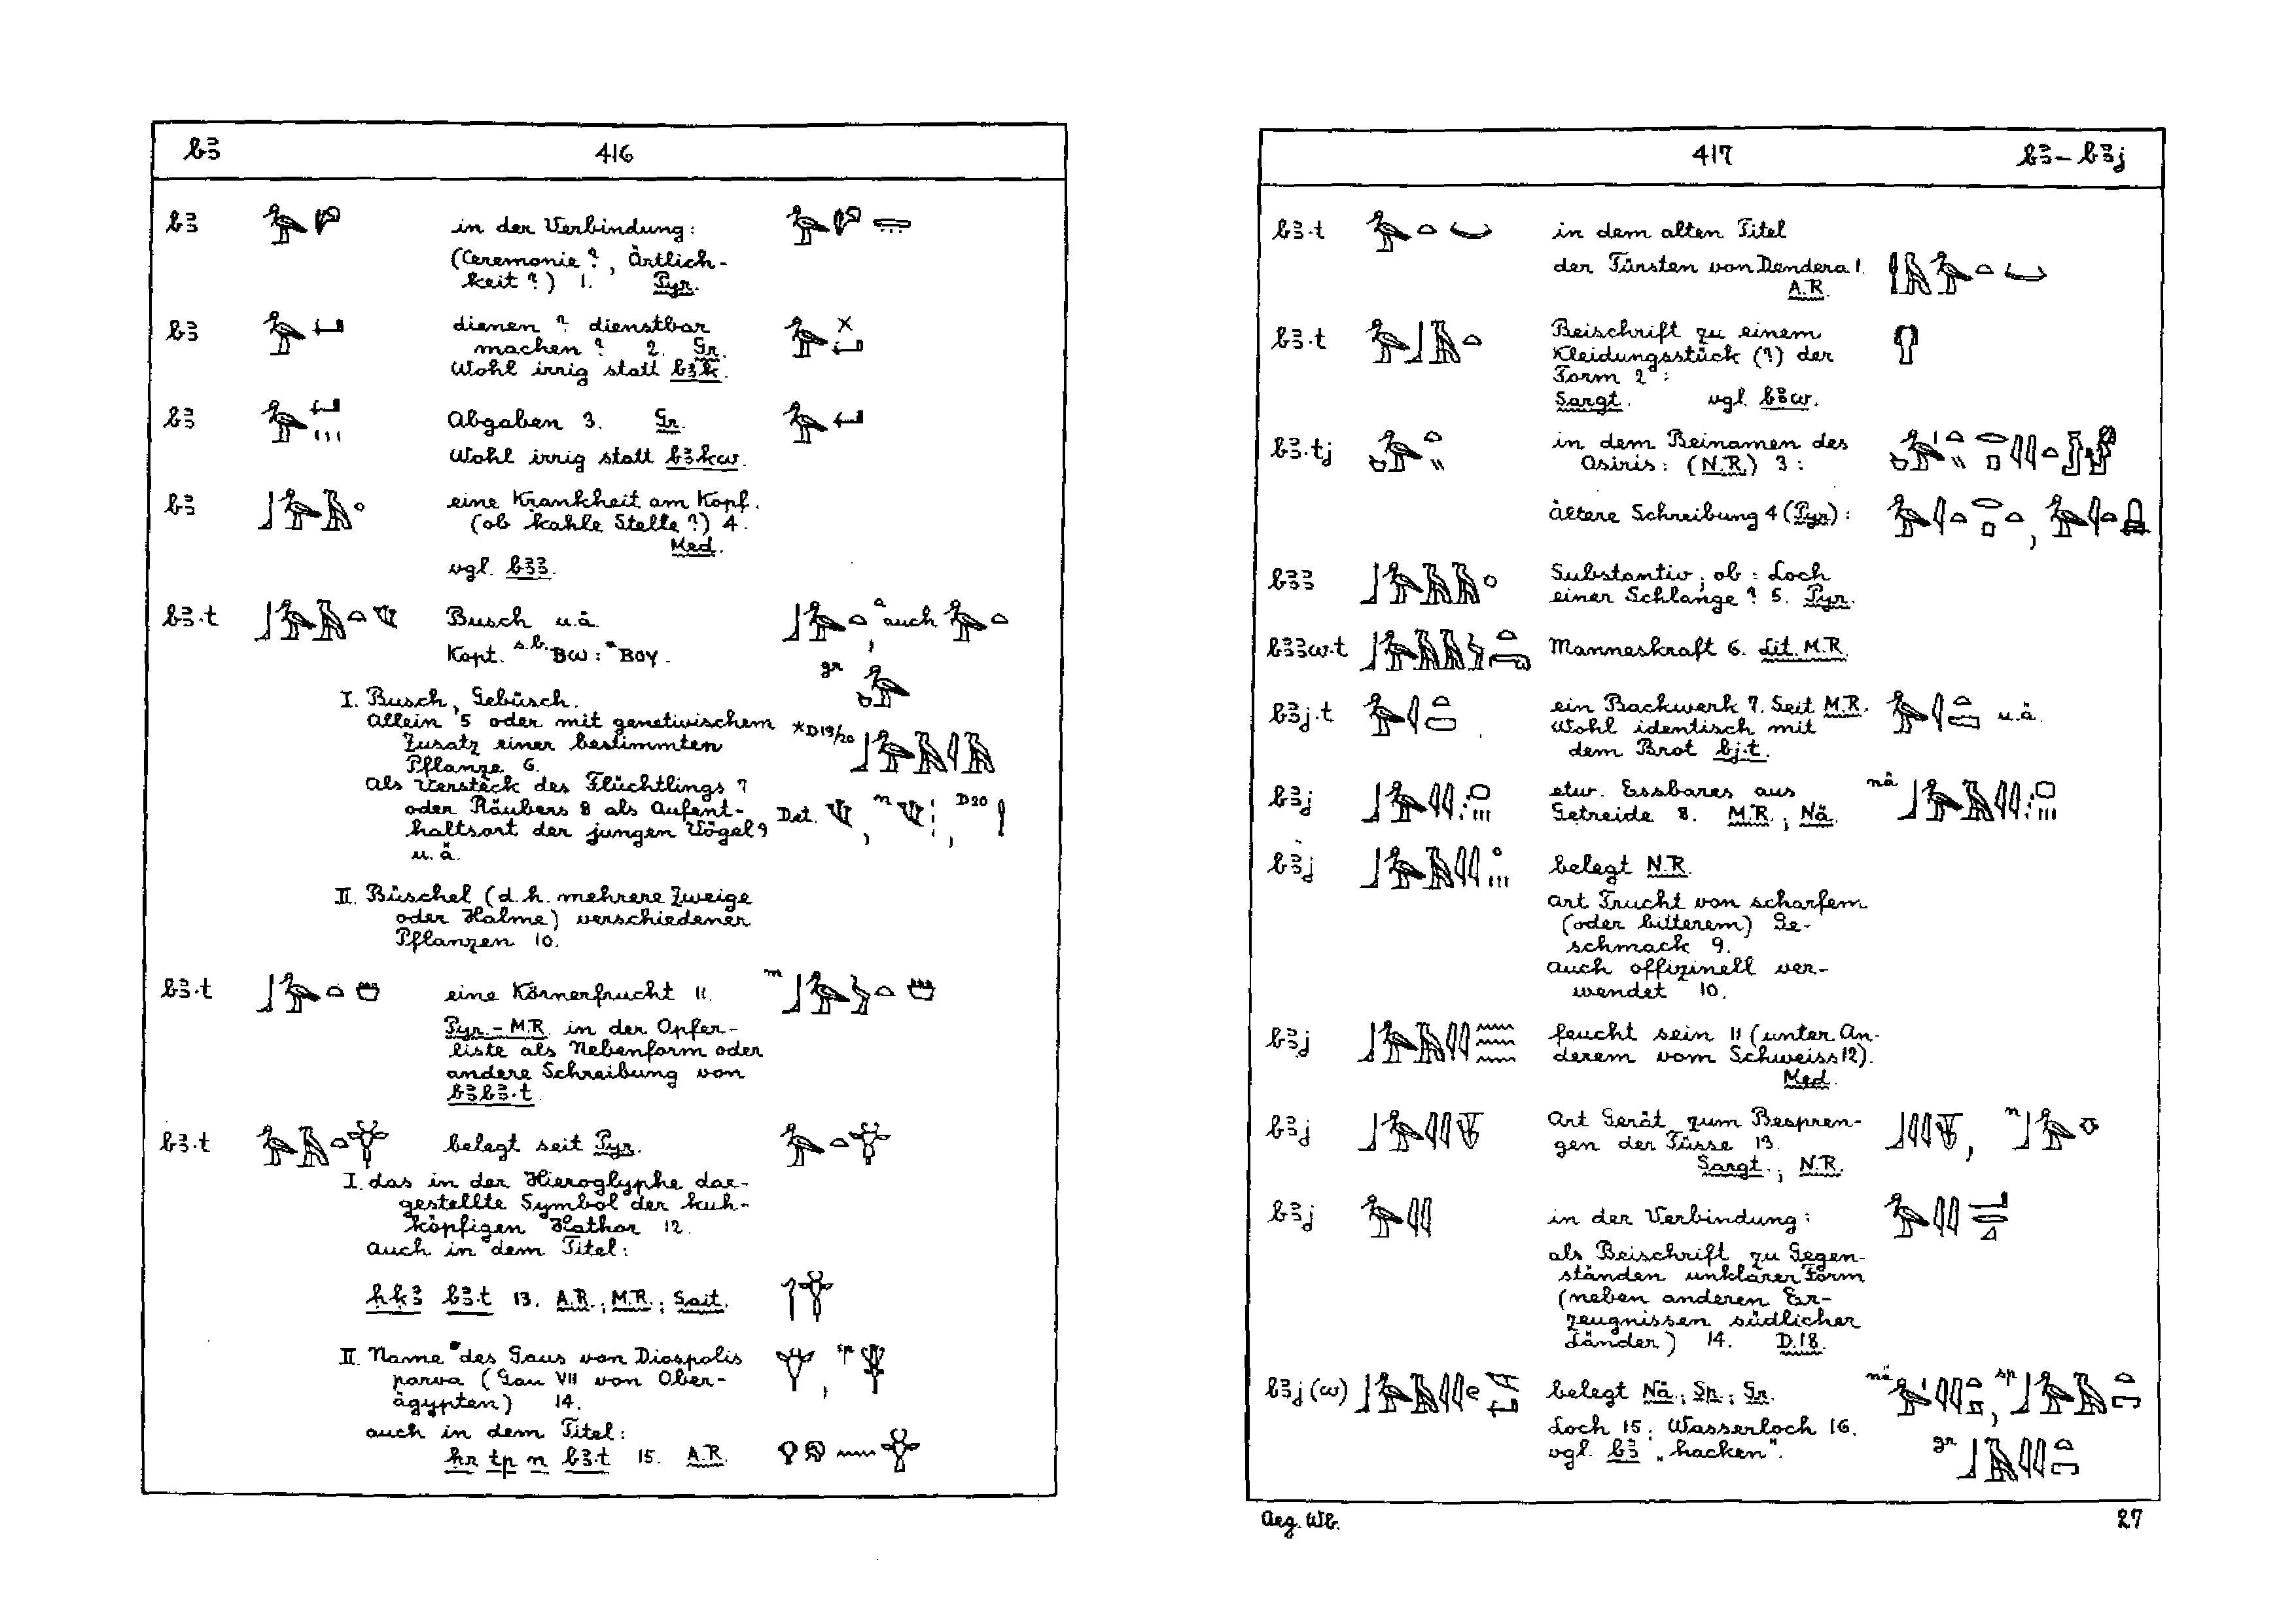 bꜣ 416
bꜣ in der Verbindung:
(Ceremonie?, Örtlich-
keit?) 1. Pyr.
bꜣ dienen? dienstbar
machen? 2. Gr.
Wohl irrig statt bꜣk.
bꜣ Abgaben 3. Gr.
Wohl irrig statt bꜣkw.
bꜣ eine Krankheit am Kopf.
(ob kahle Stelle?) 4.
Med.
vgl. bꜣꜣ.
bꜣ.t Busch u.ä. a auch
Kopt. s.b. ⲃⲱ : ⲃⲟⲩ.
gr
I. Busch, Gebüsch.
Allein 5 oder mit genetivischem *D19/20
Zusatz einer bestimmten
Pflanze 6.
Als Versteck des Flüchtlings 7
oder Räubers 8 als Aufent- Det. , n , D20
haltsort der jungen Vögel 9
u. ä.
II. Büschel (d.h. mehrere Zweige
oder Halme) verschiedener
Pflanzen 10.
bꜣ.t eine Körnerfrucht 11. m
Pyr. – M.R. in der Opfer-
liste als Nebenform oder
andere Schreibung von
bꜣbꜣ.t.
bꜣ.t belegt seit Pyr.
I. das in der Hieroglyphe dar-
gestellte Symbol der kuh-
köpfigen Hathor 12.
Auch in dem Titel:
ḥḳꜣ bꜣ.t 13. A.R.; M.R.; Sait.
II. Name des Gaus von Diospolis , sp
parva (Gau VII von Ober-
ägypten) 14.
auch in dem Titel:
ḥr tp n bꜣ.t 15. A.R.
417 bꜣ – bꜣj
bꜣ.t in dem alten Titel
der Fürsten von Dendera 1.
A.R.
bꜣ.t Beischrift zu einem
Kleidungsstück (?) der
Form 2:
Sargt. vgl. bꜣw.
bꜣ.tj in dem Beinamen des
Osiris: (N.R.) 3:
ältere Schreibung 4 (Pyr): ,
bꜣꜣ Substantiv; ob: Loch
einer Schlange? 5. Pyr.
bꜣꜣw.t Manneskraft 6. Lit. M.R.
bꜣj.t ein Backwerk 7. Seit M.R. u.ä.
Wohl identisch mit
dem Brot bj.t.
bꜣj etw. Essbares aus nä
Getreide 8. M.R.; Nä.
bꜣj belegt N.R.
Art Frucht von scharfem
(oder bitterem) Ge-
schmack 9.
Auch offizinell ver-
wendet 10.
bꜣj feucht sein 11 (unter An-
derem vom Schweiss 12).
Med.
bꜣj Art Gerät zum Bespren- , n
gen der Füsse 13.
Sargt.; N.R.
bꜣj in der Verbindung:
als Beischrift zu Gegen-
ständen unklarer Form
(neben anderen Er-
zeugnissen südlicher
Länder) 14. D.18.
bꜣj(w) belegt Nä.; Sp.; Gr. nä , sp
Loch 15; Wasserloch 16.
vgl. bꜣ „hacken". gr
Aeg. Wb. 27